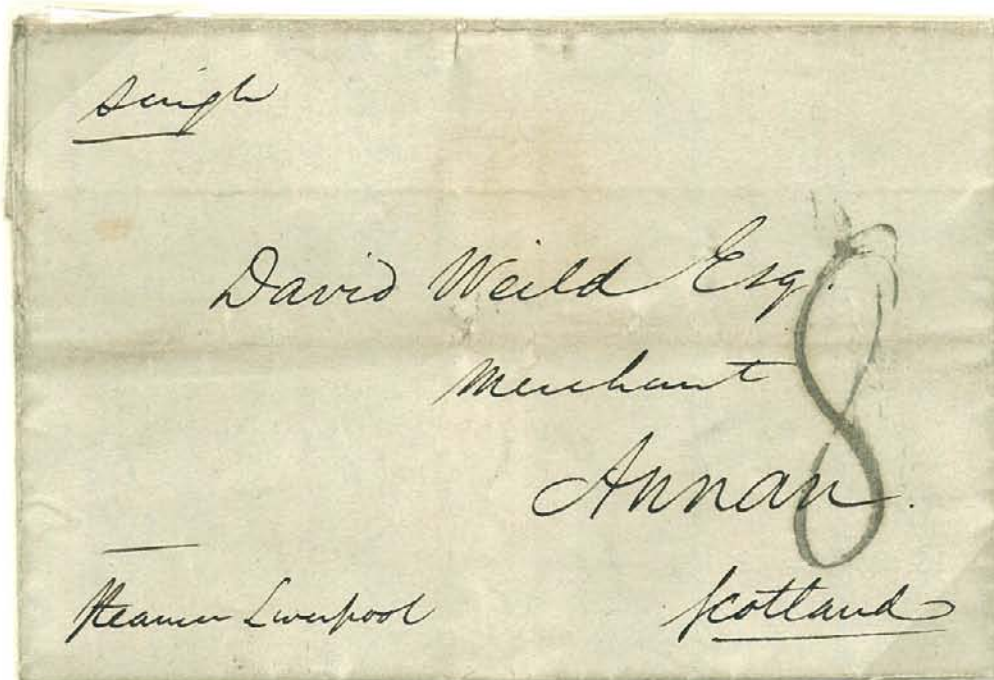 Single
David Weild Esq.
Merchant
Annan.
8
Steamer Liverpool
Scotland